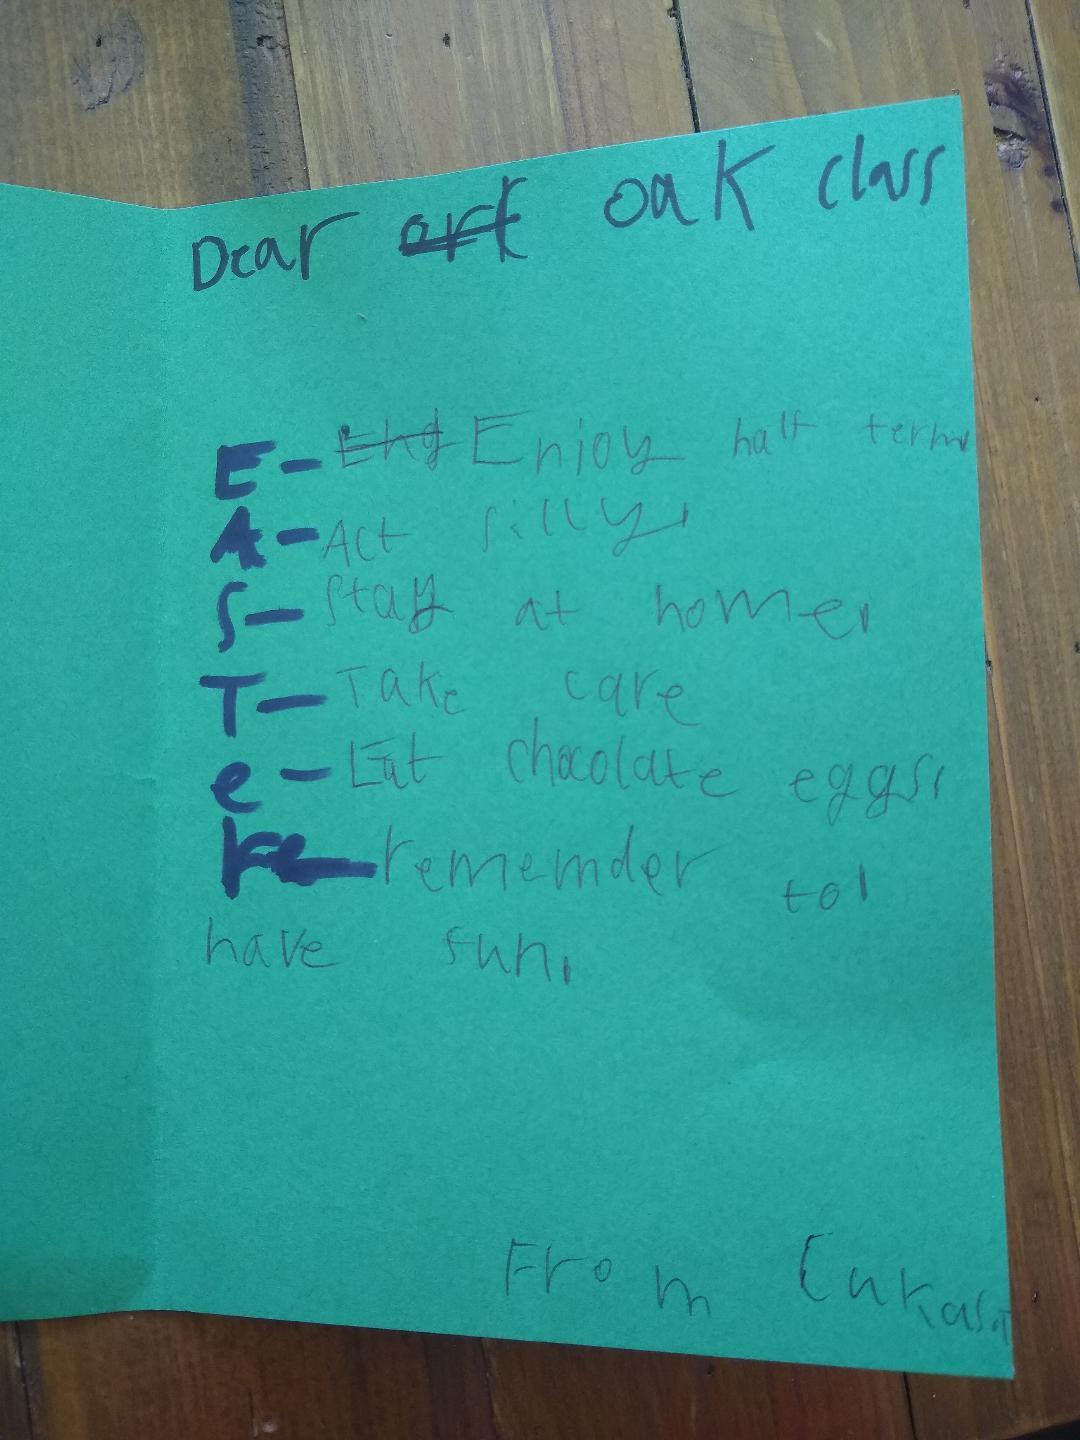 Dear oak class
E - Enjoy half term
A - Act silly,
S - Stay at home,
T - Take care
e - Eat chocolate eggs,
r - rememder to
have fun,
From Lukas